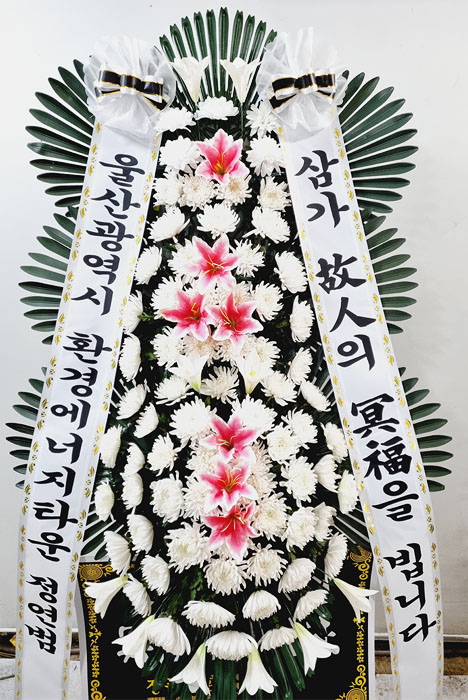 울산광역시 환경에너지타운 정인범
삼가 故人의 冥福을 빕니다